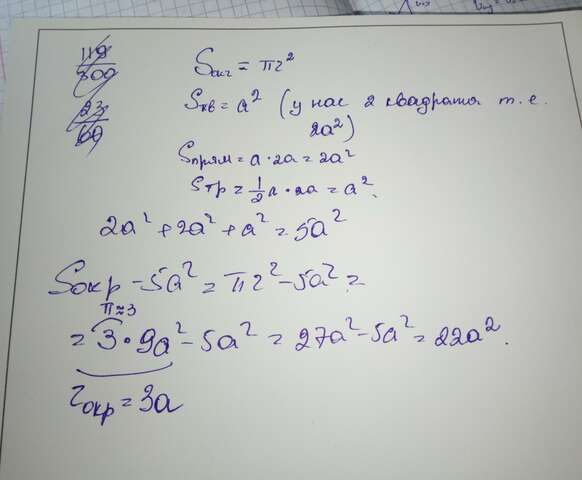 119/300
23/60
Sокр = πr²
Sкв = a² (у нас 2 квадрата т.е.
2a²)
Sпрям = a · 2a = 2a²
Sтр = 1/2 a · 2a = a².
2a² + 2a² + a² = 5a²
Sокр - 5a² = πr² - 5a² =
π≈3
= 3 · 9a² - 5a² = 27a² - 5a² = 22a².
rокр = 3a